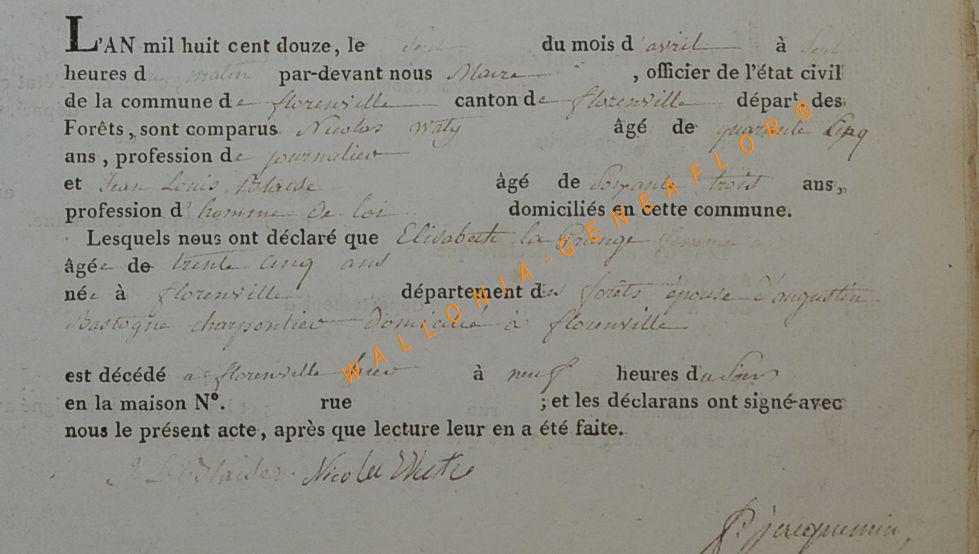 L'AN mil huit cent douze, le Sept du mois d'avril à Sept
heures du matin par-devant nous Maire, officier de l'état civil
de la commune de florenville canton de florenville départ. des
Forêts, sont comparus Nicolas Waty âgé de quarante cinq
ans, profession de journalier
et Jean Louis Blaise âgé de Soixante trois ans,
profession d'homme de loi domiciliés en cette commune.
Lesquels nous ont déclaré que Elisabeth la Grange
âgée de trente cinq ans
née à florenville département des forêts épouse d'augustin
Bastogne charpentier Domicilié à florenville
est décédé a florenville hier à neuf heures du Soir
en la maison N°. rue ; et les déclarans ont signé avec
nous le présent acte, après que lecture leur en a été faite.
J L Blaise Nicolas
jacquemin
WALLONIA-GENEAFLOR®